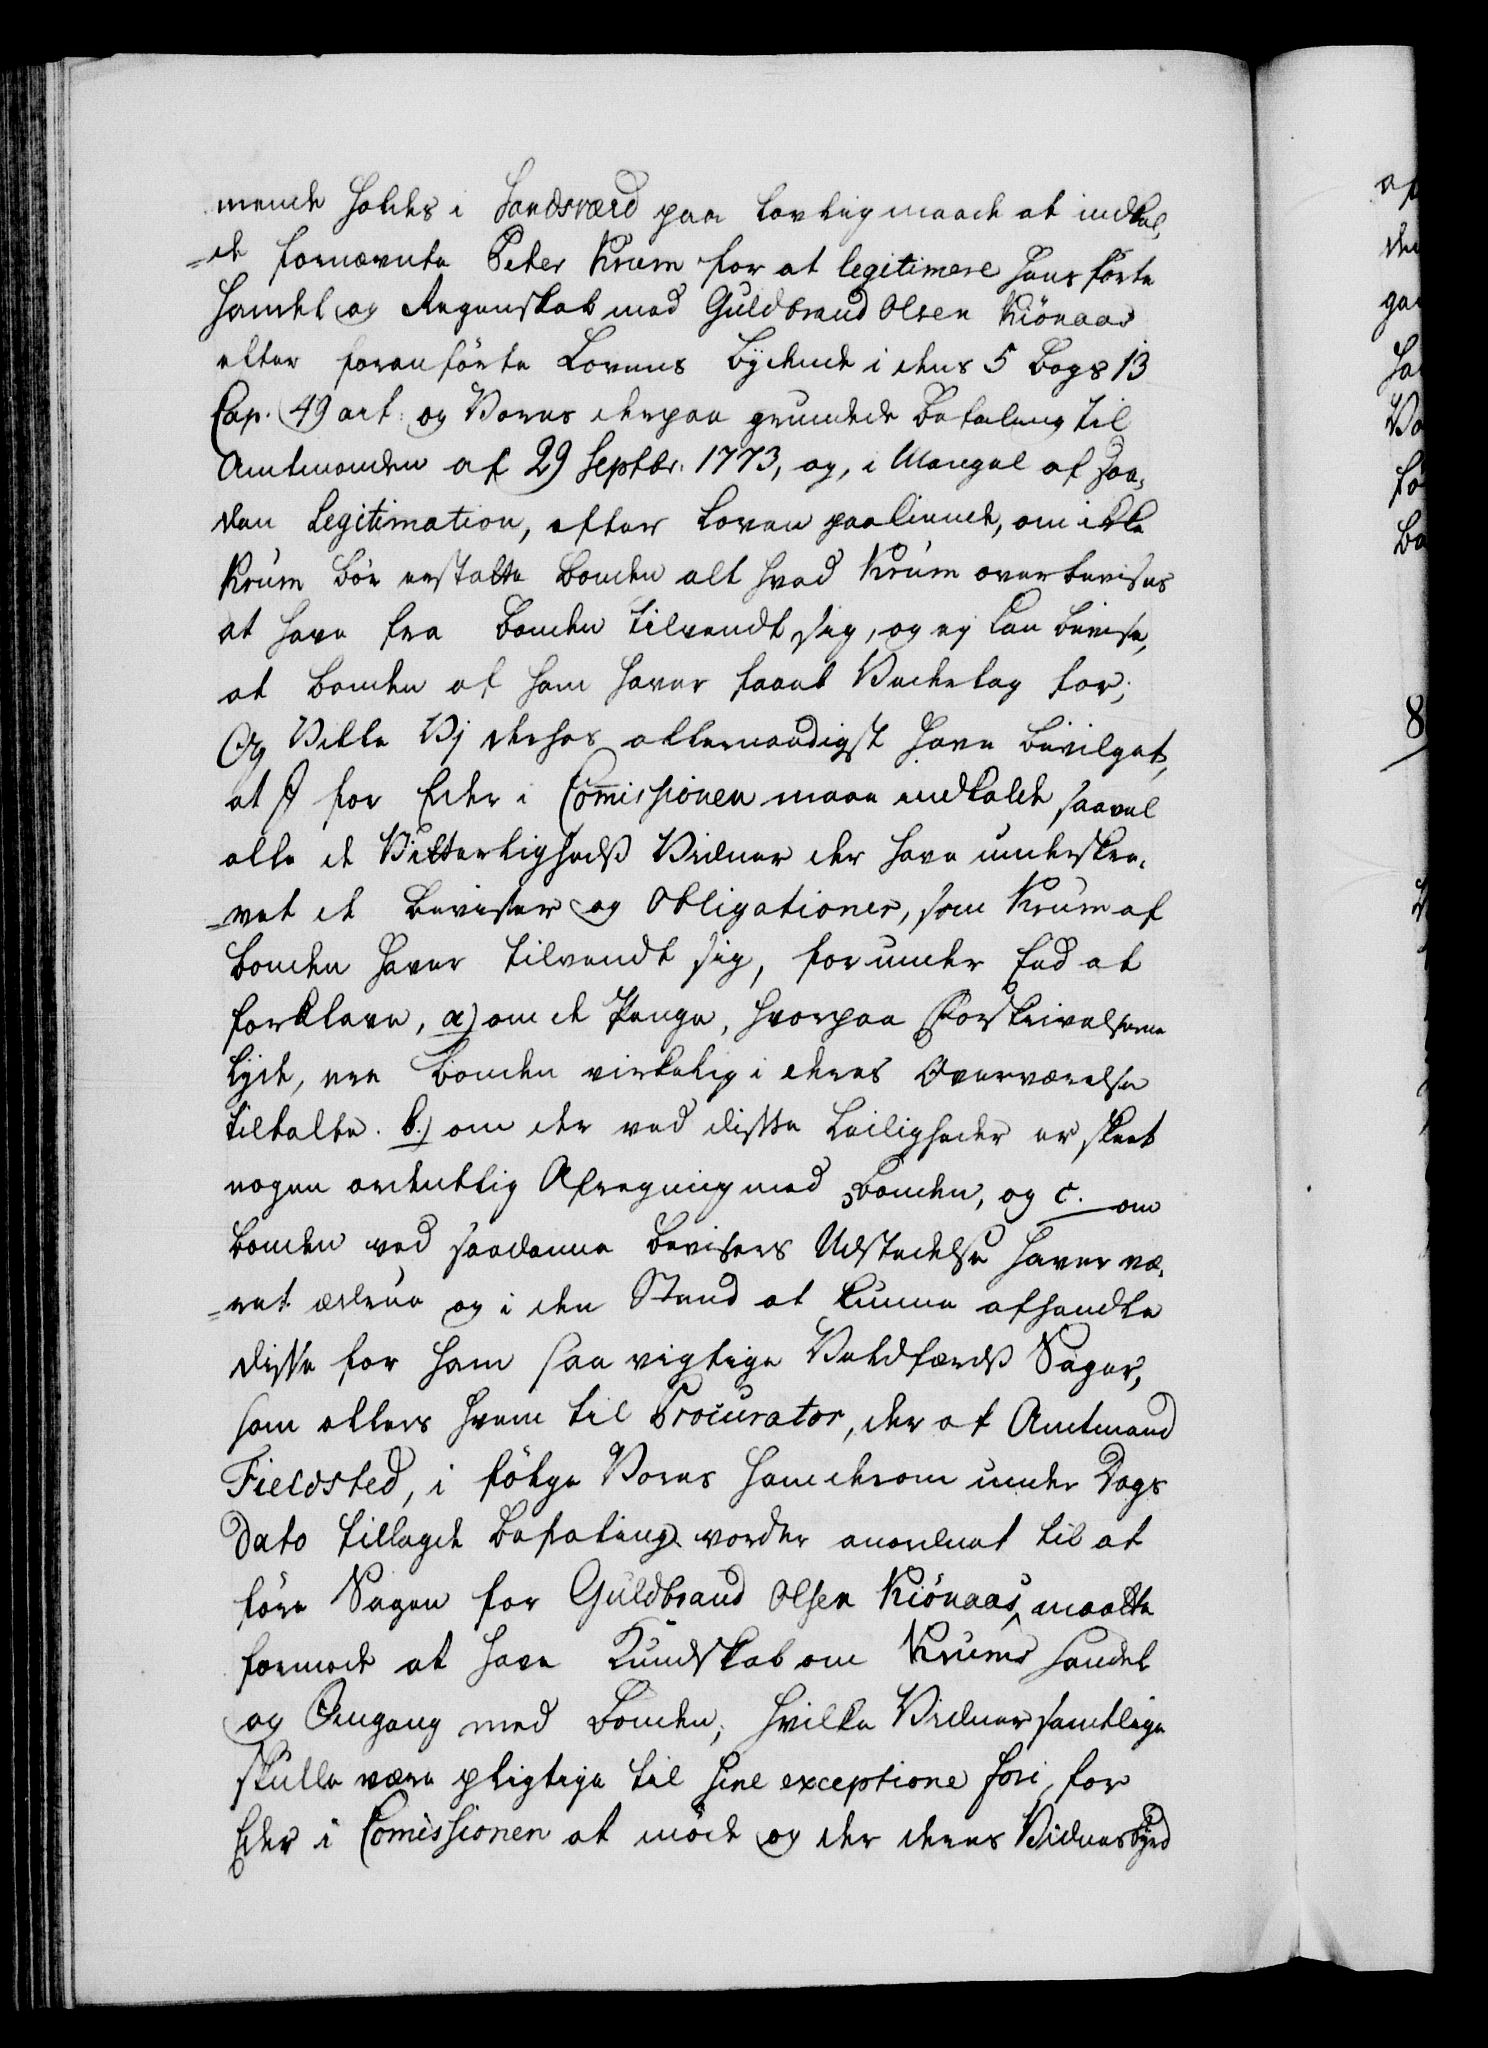 mende holdes i Sandsværd paa lovlig maade at indkal,
=de fornævnte Peter Krum for at legitimere hans førte
Handel og Regenskab med Guldbrand Olsen Kiönaas
efter foranførte Lovens Bydende i dens 5 Bogs 13
Cap. 49 art: og Vores derpaa grundede Befaling til
Amtmanden af 29 Septbr. 1773, og, i Mangel af saa,
dan Legitimation, efter Loven paakiende, om ikke
Krum bör erstatte Bonden alt hvad Krum overbevises
at have fra Bonden tilvendt sig, og ej kan bevise,
at Bonden af ham haver faaet Vederlag for;
Og Ville Vj derhos allernaadigst have bevilget,
at I for Eder i Comissionen maae indkalde saavel
alle de Vitterligheds Vidner der have underskre,
=vet de Beviser og Obligationer, som Krum af
Bonden haver tilvendt sig, for under Eed at
forklare, a) om de Penge, hvorpaa Forskrivelserne
lyde, ere Bonden virkelig i deres Overværelse
tiltalte. b.) om der ved disse Leiligheder er skeet
nogen ordentlig Afregning med Bonden, og c. om
Bonden ved saadanne Bevisers Udstedelse haver væ,
=ret ædrue og i den Stand at kunne afhandle
disse for ham saa vigtige Veldfærds Sager,
som ellers hvem til Procurator, der af Amtmand
Fieldsted, i følge Vores ham derom under Dags
Dato tillagde Befaling vorder anordnet til at
føre Sagen for Guldbrand Olsen Kiönaas, maatte
formode at have Kundskab om Krums Handel
og Omgang med Bonden; hvilke Vidner samtlige
skulle være pligtige til sine exceptione fori, for
Eder i Comissionen at möde og der deres Vidnesbyrd